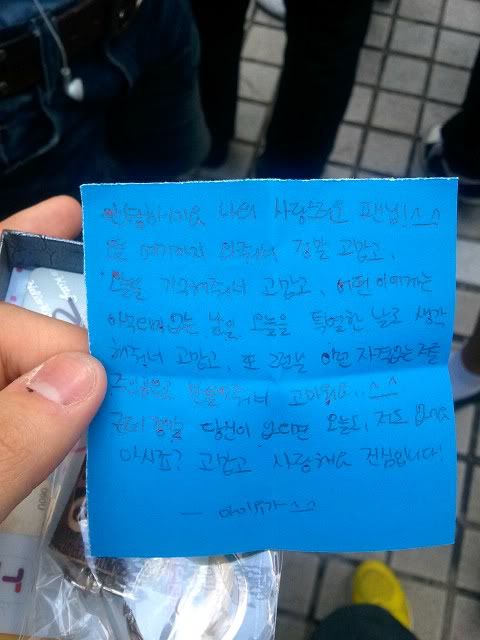 안녕하세요 나의 사랑스러운 팬님!^_^
오늘 여기까지 와줘서 정말 고맙고,
오늘을 기억해줘서 고맙고, 어떤 이에게는
아무것도 없는 날일 오늘을 특별한 날로 생각
해줘서 고맙고, 또 그런 아무 자격없는 저를
주인공으로 만들어줘서 고마워요..^_^
근데 정말 당신이 없다면 오늘도, 저도 없어요
아시죠? 고맙고 사랑해요 진심입니다!
— 아이유가 ^_^